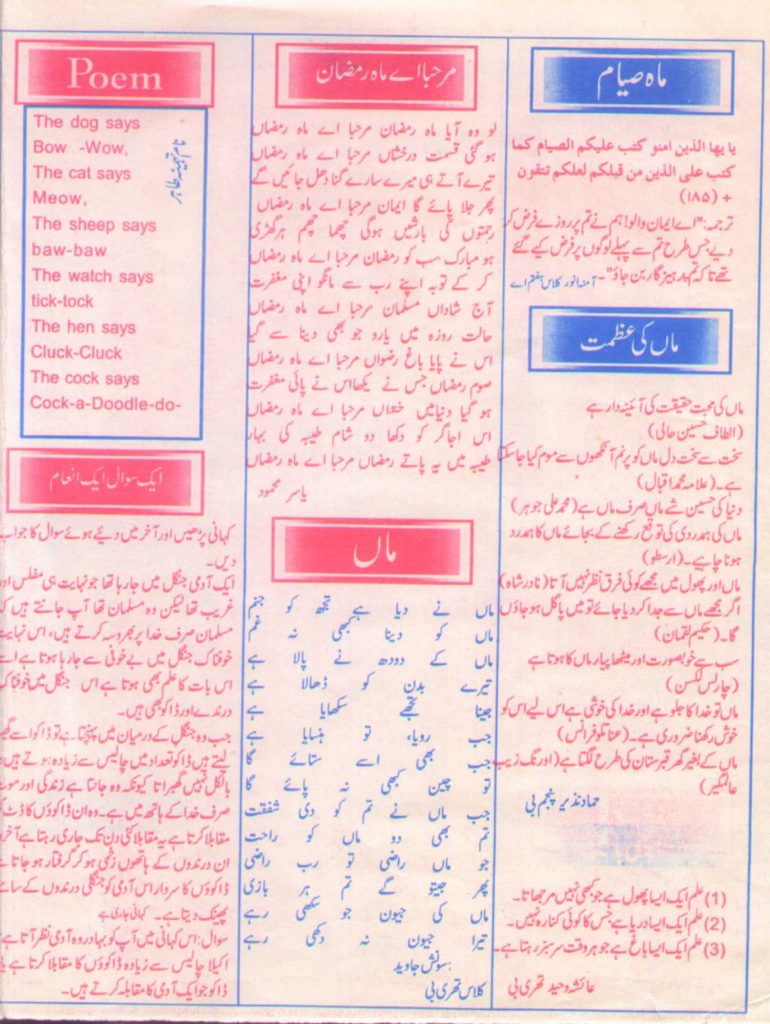 ماہ صیام
یا یھا الذین امنو کتب علیکم الصیام کما
کتب علی الذین من قبلکم لعلکم تتقون
+ (۱۸۵)
ترجمہ:"اے ایمان والو! ہم نے تم پر روزے فرض کر
دیے جس طرح تم سے پہلے لوگوں پر فرض کیے گئے
تھے تاکہ تم پرہیزگار بن جاؤ"۔ آمنہ انور کلاس ہفتم اے
ماں کی عظمت
ماں کی محبت حقیقت کی آئینہ دار ہے
(الطاف حسین حالی)
سخت سے سخت دل ماں کو پرنم آنکھوں سے موم کیا جا سکتا
ہے۔ (علامہ محمد اقبال)
دنیا کی حسین شے ماں صرف ماں ہے (محمد علی جوہر)
ماں کی ہمدردی کی توقع رکھنے کے بجائے ماں کا ہمدرد
ہونا چاہیے۔ (ارسطو)
ماں اور پھول میں مجھے کوئی فرق نظر نہیں آتا (نادر شاہ)
اگر مجھے ماں سے جدا کر دیا جائے تو میں پاگل ہو جاؤں
گا۔ (حکیم لقمان)
سب سے خوبصورت اور میٹھا پیار ماں کا ہوتا ہے
(چارلس لنکسن)
ماں تو خدا کا جلوہ ہے اور خدا کی خوشی ہے اس لیے اس کو
خوش رکھنا ضروری ہے۔ (فرانس)
ماں کے بغیر گھر قبرستان کی طرح لگتا ہے (اورنگ زیب
عالمگیر)
حماد نذیر پنجم بی
(1) علم ایک ایسا پھول ہے جو کبھی نہیں مرجھاتا۔
(2) علم ایک ایسا دریا ہے جس کا کوئی کنارہ نہیں۔
(3) علم ایک ایسا باغ ہے جو ہر وقت سرسبز رہتا ہے۔
عائشہ وحید تھری بی
مرحبا اے ماہ رمضان
لو وہ آیا ماہ رمضان مرحبا اے ماہ رمضاں
ہو گئی قسمت درخشاں مرحبا اے ماہ رمضاں
تیرے آتے ہی میرے سارے گنا دھل جائیں گے
پھر جلا پائے گا ایمان مرحبا اے ماہ رمضاں
رحمتوں کی بارشیں ہوگی چھما چھم ہر گھڑی
ہو مبارک سب کو رمضان مرحبا اے ماہ رمضاں
کر کے توبہ اپنے رب سے مانگو اپنی مغفرت
آج شاداں مسلمان مرحبا اے ماہ رمضاں
حالت روزہ میں یارو جو بھی دینا سے گیا
اس نے پایا باغ رضواں مرحبا اے ماہ رمضاں
صوم رمضاں جس نے یکھا اس نے پائی مغفرت
ہو گیا دنیا میں خنداں مرحبا اے ماہ رمضاں
اس اجاگر کو دکھا دو شام طیبہ کی بہار
طیبہ میں یہ پاتے رمضاں مرحبا اے ماہ رمضاں
یاسر محمود
ماں
ماں نے دیا ہے تجھ کو جنم
ماں کو دینا کبھی نہ غم
ماں کے دودھ نے پالا ہے
تیرے بدن کو ڈھالا ہے
جینا تجھے سکھایا ہے
جب رویا، تو ہنسایا ہے
جب بھی اسے ستائے گا
تو چین کبھی نہ پائے گا
جب ماں نے تم کو دی شفقت
تم بھی دو ماں کو راحت
جو ماں راضی تو رب راضی
پھر جیتو گے تم ہر بازی
ماں کی جیون جو سکھی رہے
تیرا جیون نہ دکھی رہے
سونش جاوید
کلاس تھری بی
Poem
The dog says
Bow -Wow,
The cat says
Meow,
The sheep says
baw-baw
The watch says
tick-tock
The hen says
Cluck-Cluck
The cock says
Cock-a-Doodle-do-
نام تہمینہ طاہر
ایک سوال ایک انعام
کہانی پڑھیں اور آخر میں دیئے ہوئے سوال کا جواب
دیں۔
ایک آدمی جنگل میں جا رہا تھا جو نہایت ہی مفلس اور
غریب تھا لیکن وہ مسلمان تھا آپ جانتے ہیں کہ
مسلمان صرف خدا پر بھروسہ کرتے ہیں، اس نہایت
خوفناک جنگل میں بے خوفی سے جا رہا ہوتا ہے اسے
اس بات کا علم بھی ہوتا ہے اس جنگل میں خوفناک
درندے اور ڈاکو بھی ہیں۔
جب وہ جنگل کے درمیان میں پہنچتا ہے تو ڈاکو اسے گھیر
لیتے ہیں ڈاکو تعداد میں چالیس سے زیادہ ہوتے ہیں
بالکل نہیں گھبراتا کیونکہ وہ جانتا ہے زندگی اور موت
صرف خدا کے ہاتھ میں ہے۔ وہ ان ڈاکوؤں کا ڈٹ کر
مقابلا کرتا ہے یہ مقابلا کئی دن تک جاری رہتا ہے آخر
ان درندوں کے ہاتھوں زخمی ہو کر گرفتار ہو جاتا ہے
ڈاکوؤں کا سردار اس آدمی کو جنگلی درندوں کے سامنے
پھینک دیتا ہے۔ کہانی جاری ہے
سوال: اس کہانی میں آپ کو بہادر وہ آدمی نظر آتا ہے
اکیلا چالیس سے زیادہ ڈاکوؤں کا مقابلا کرتا ہے یا
ڈاکو جو ایک آدمی کا مقابلہ کرتے ہیں۔